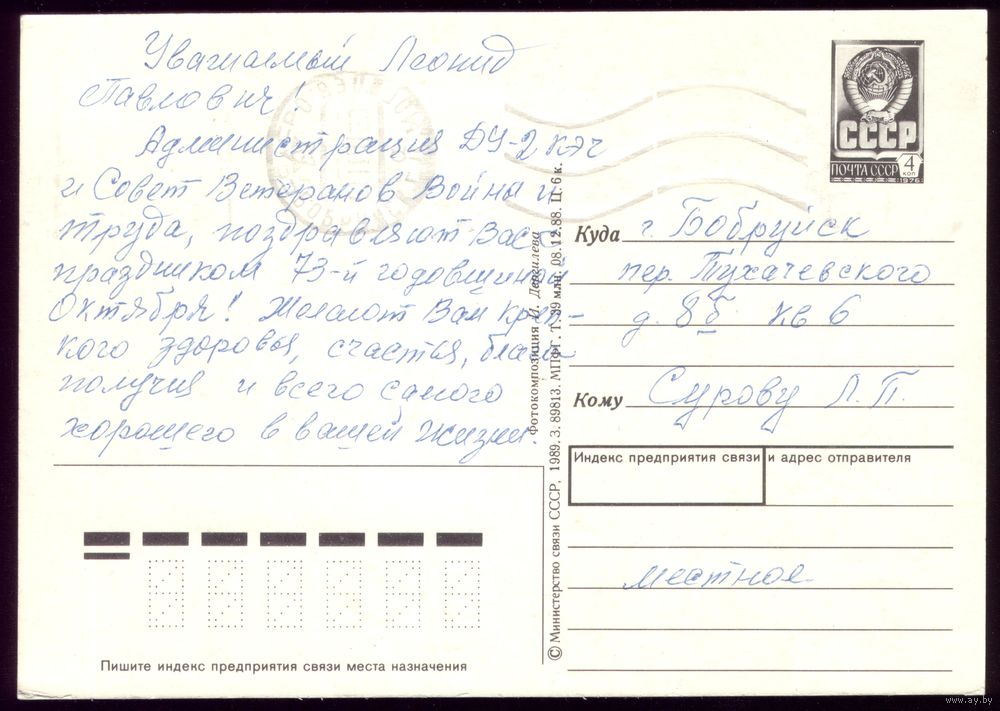 Уважаемый Леонид
Павлович!
Администрация ДУ-2 КЭЧ
и Совет Ветеранов Войны и
труда, поздравляют Вас с
праздником 73-й годовщиной
Октября! Желают Вам креп-
кого здоровья, счастья, благо-
получия и всего самого
хорошего в вашей жизни.
СССР
ПОЧТА СССР
4
КОП
1976
Куда г. Бобруйск
пер. Тухачевского
д. 8б кв 6
Кому Сурову Л.П.
Индекс предприятия связи и адрес отправителя
местное
Пишите индекс предприятия связи места назначения
Фотокомпозиция И. Дергилева
© Министерство связи СССР, 1989. З. 89813. МПФГ. Т. 39 млн. 08.12.88. Ц. 6 к.
www.ay.by